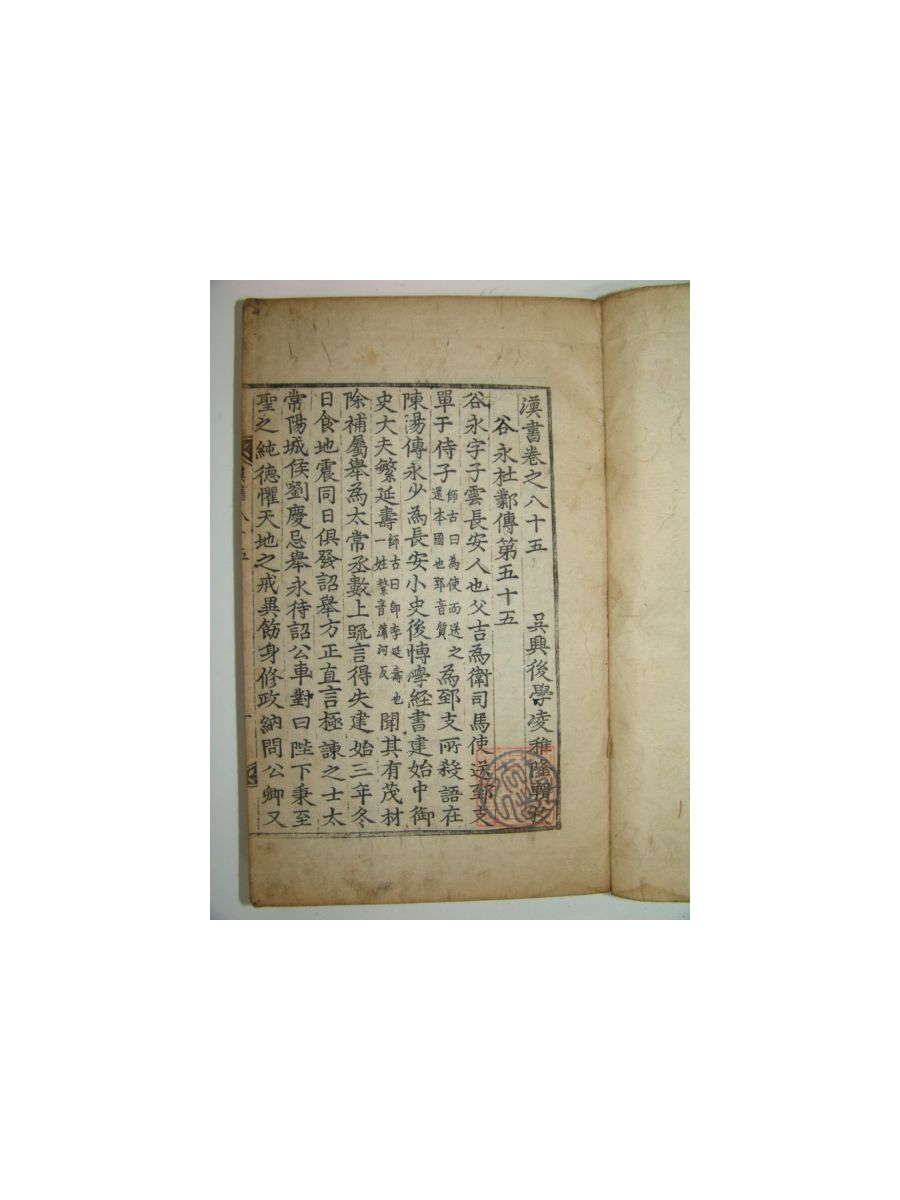 漢書卷之八十五
吳興後學凌稚隆輯校
谷永杜鄴傳第五十五
谷永字子雲長安人也父吉為衛司馬使送郅支
單于侍子師古曰為使而送之還本國也郅音質為郅支所殺語在
陳湯傳永少為長安小史後博學経書建始中御
史大夫繁延壽師古曰即李延壽也一姓繁音蒲河反聞其有茂材
除補屬舉為太常丞數上疏言得失建始三年冬
日食地震同日俱發詔舉方正直言極諫之士太
常陽城侯劉慶忌舉永待詔公車對曰陛下秉至
聖之純德懼天地之戒異飭身修政納問公卿又